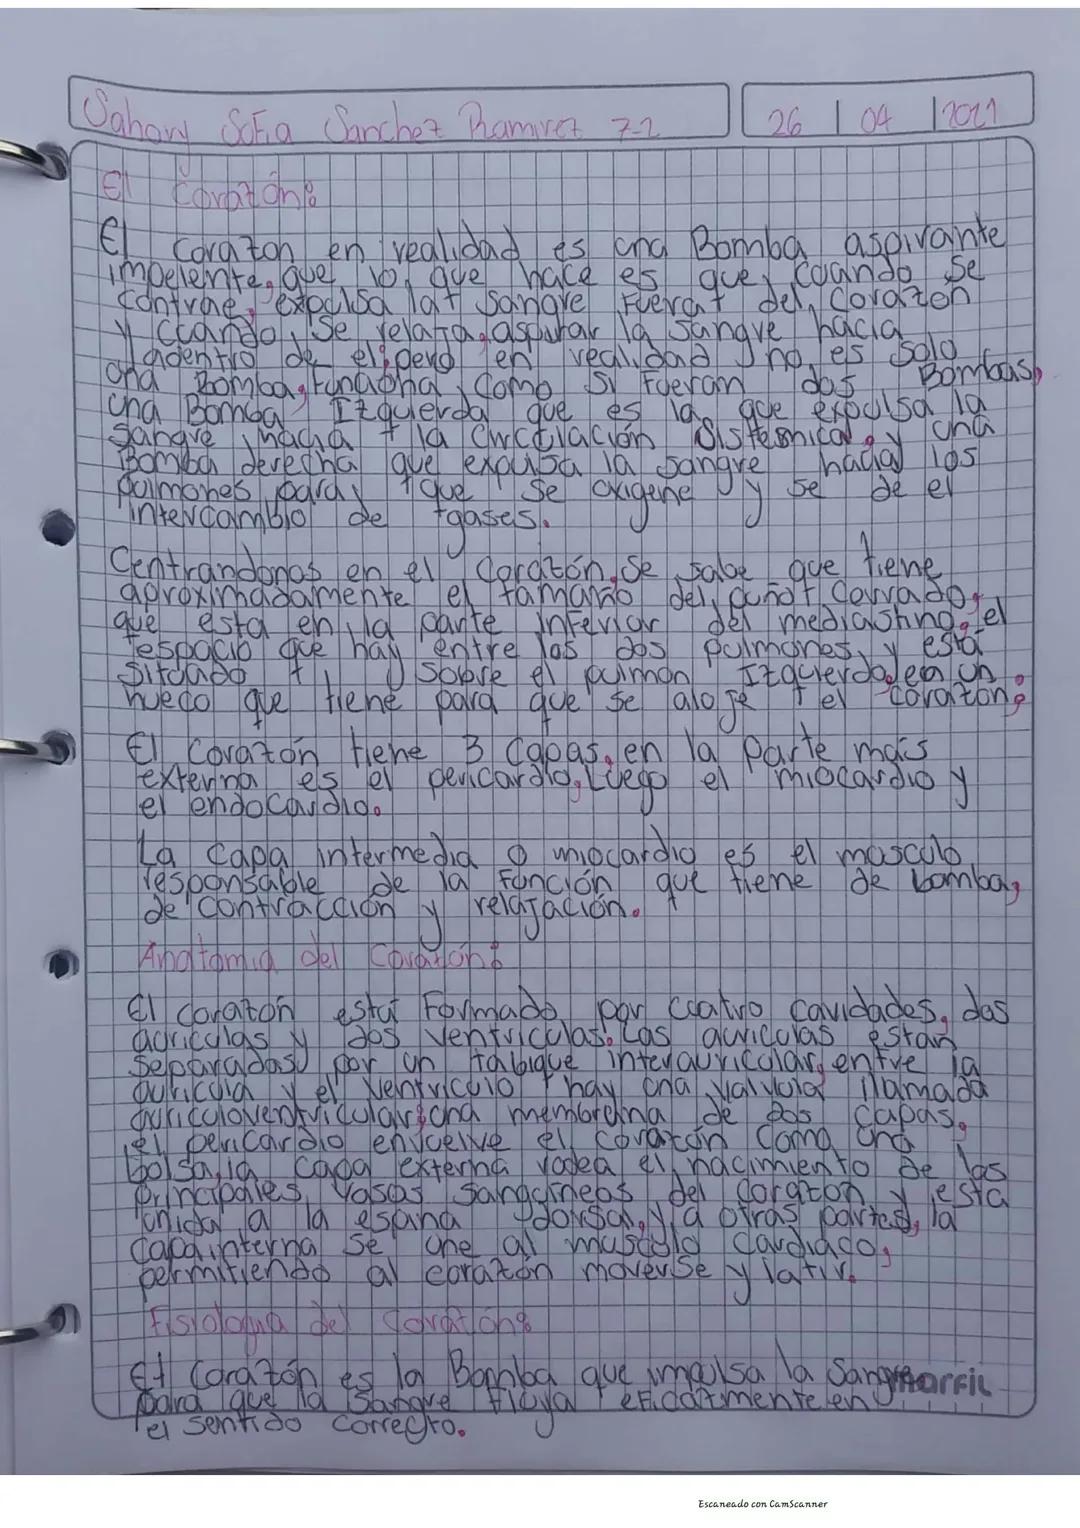 Sahory Sofia Sanchez Ramirez 7-2 26 | 04 | 2021
El Corazón:
El corazon en realidad es una Bomba aspirante
impelente, que lo que hace es que, cuando se
contrae, expulsa la sangre Fuera del corazón
y cuando se relaja, aspirar la sangre hacia
adentro de el; pero en realidad no es solo
una Bomba, Funciona como si Fueran dos Bombas,
una Bomba Izquierda que es la que expulsa la
sangre hacia la circulación Sistemica, y una
Bomba derecha que expulsa la sangre hacia los
pulmones para que se oxigene y se de el
intercambio de gases.
Centrandonos en el Corazón, se sabe que tiene
aproximadamente el tamaño del puño cerrado,
que esta en la parte inferior del mediastino, el
espacio que hay entre los dos pulmones, y está
situado sobre el pulmon Izquierdo, en un
hueco que tiene para que se aloje el corazón.
El Corazón tiene 3 Capas, en la Parte más
externa es el pericardio, Luego el miocardio y
el endocardio.
La Capa intermedia o miocardio es el musculo
responsable de la Función que tiene de bomba,
de contracción y relajación.
Anatomia del Corazón:
El corazón está Formado por cuatro cavidades, dos
auriculas y dos ventriculos. Las auriculas están
Separadas por un tabique interauricular, entre la
auricula y el Ventriculo hay una valvula llamada
auriculoventricular; una membrana de dos capas,
el pericardio envuelve el corazón como una
bolsa, la capa externa rodea el nacimiento de los
principales vasos sanguineos del corazón y esta
unida a la espina dorsal, y a otras partes, la
capa interna se une al musculo cardiaco,
permitiendo al corazón moverse y latir.
Fisiologia del Corazón:
El Corazón es la Bomba que impulsa la Sangre marfil
para que la Sangre Fluya eficazmente en
el sentido correcto.
Escaneado con CamScanner